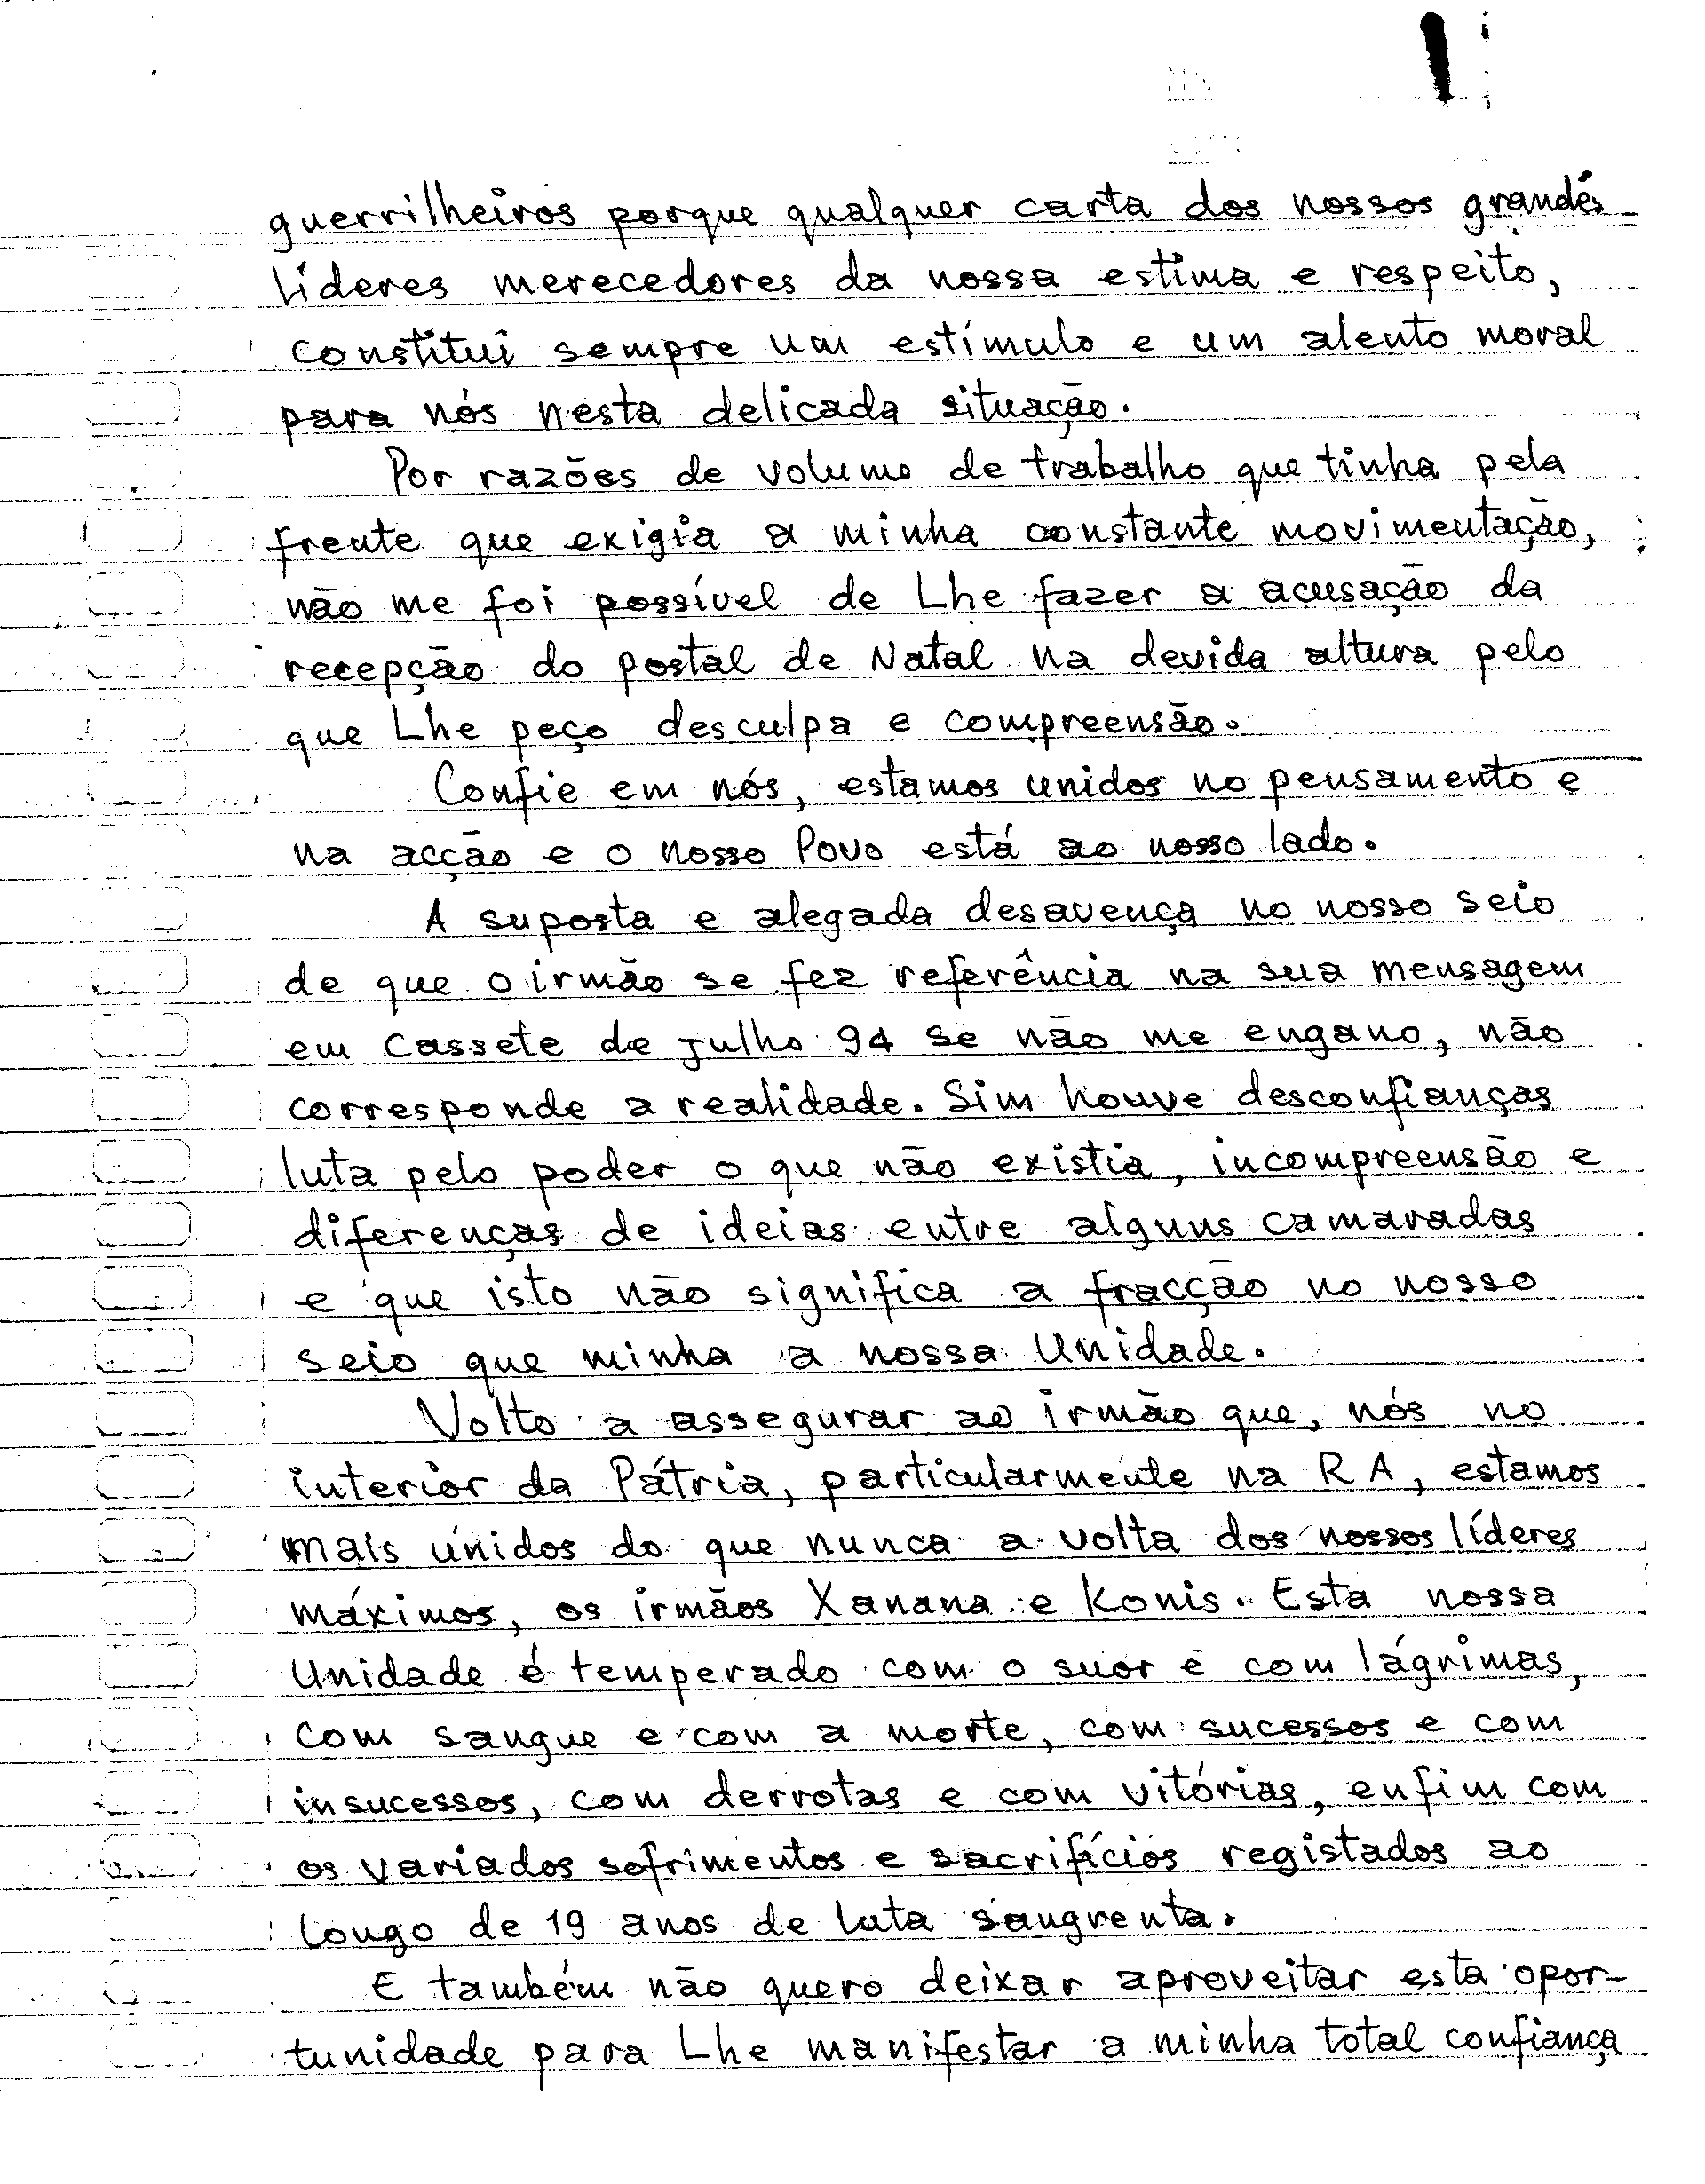 guerrilheiros porque qualquer carta dos nossos grandes
líderes merecedores da nossa estima e respeito,
constitui sempre um estímulo e um alento moral
para nós nesta delicada situação.
Por razões de volume de trabalho que tinha pela
frente que exigia a minha constante movimentação,
não me foi possível de Lhe fazer a acusação da
recepção do postal de Natal na devida altura pelo
que Lhe peço desculpa e compreensão.
Confie em nós, estamos unidos no pensamento e
na acção e o nosso Povo está ao nosso lado.
A suposta e alegada desavença no nosso seio
de que o irmão se fez referência na sua mensagem
em Cassete de julho 94 se não me engano, não
corresponde a realidade. Sim houve desconfianças
luta pelo poder o que não existia, incompreensão e
diferenças de ideias entre alguns camaradas
e que isto não significa a fracção no nosso
seio que minha a nossa Unidade.
Volto a assegurar ao irmão que, nós no
interior da Pátria, particularmente na RA, estamos
mais unidos do que nunca a volta dos nossos líderes
máximos, os irmãos Xanana e Konis. Esta nossa
Unidade é temperado com o suor e com lágrimas,
com sangue e com a morte, com sucessos e com
insucessos, com derrotas e com vitórias, enfim com
os variados sofrimentos e sacrifícios registados ao
longo de 19 anos de luta sangrenta.
E também não quero deixar aproveitar esta opor-
tunidade para Lhe manifestar a minha total confiança